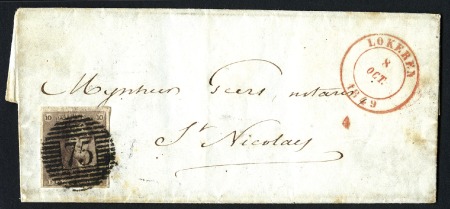 LOKEREN
8
OCT.
1849
Mynheer Geers, notaris
St Nicolaes
10 10
75